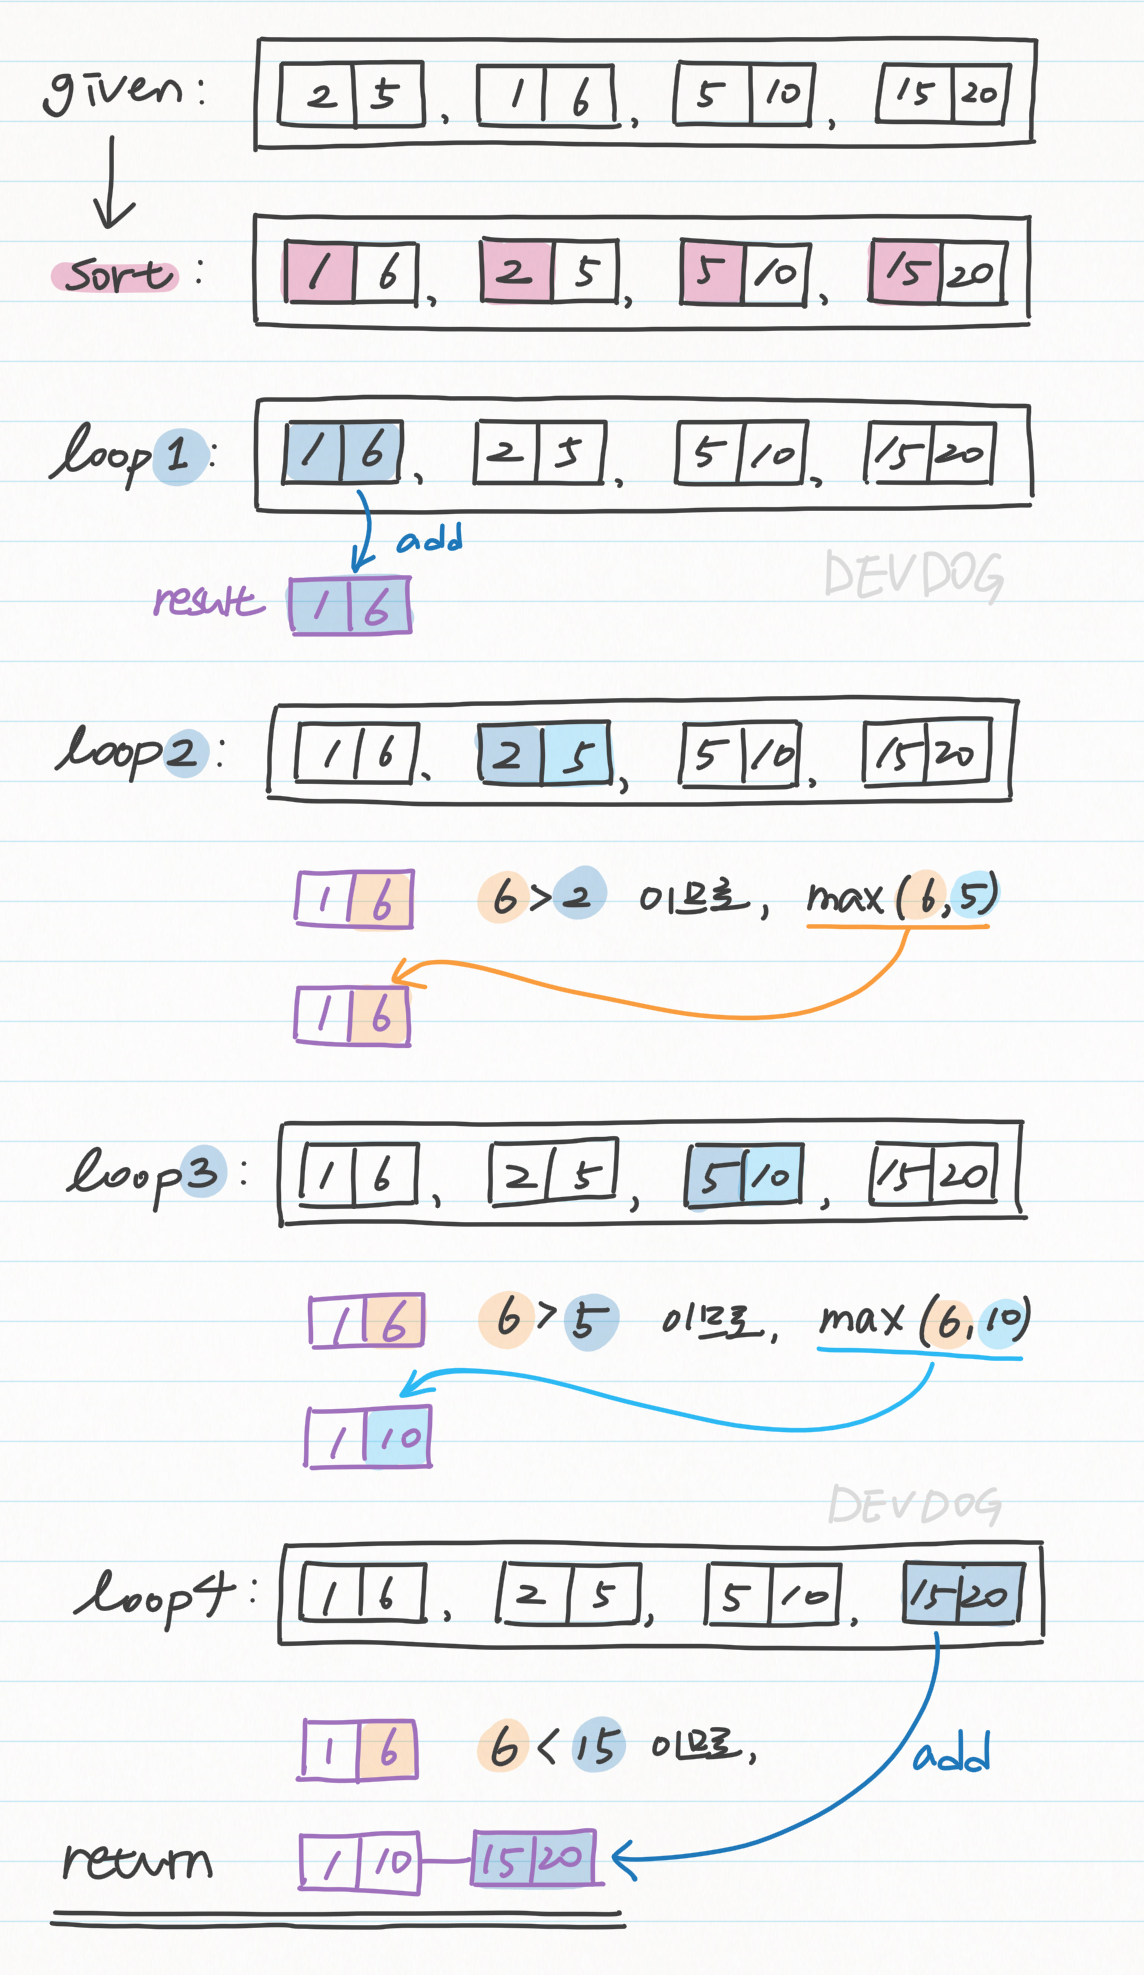 given: 2 5, 1 6, 5 10, 15 20
sort: 1 6, 2 5, 5 10, 15 20
loop1: 1 6, 2 5, 5 10, 15 20
add
DEVDOG
result 1 6
loop2: 1 6, 2 5, 5 10, 15 20
1 6 6>2 이므로, max(6,5)
1 6
loop3: 1 6, 2 5, 5 10, 15 20
1 6 6>5 이므로, max(6,10)
1 10
DEVDOG
loop4: 1 6, 2 5, 5 10, 15 20
1 6 6<15 이므로,
add
return 1 10 15 20